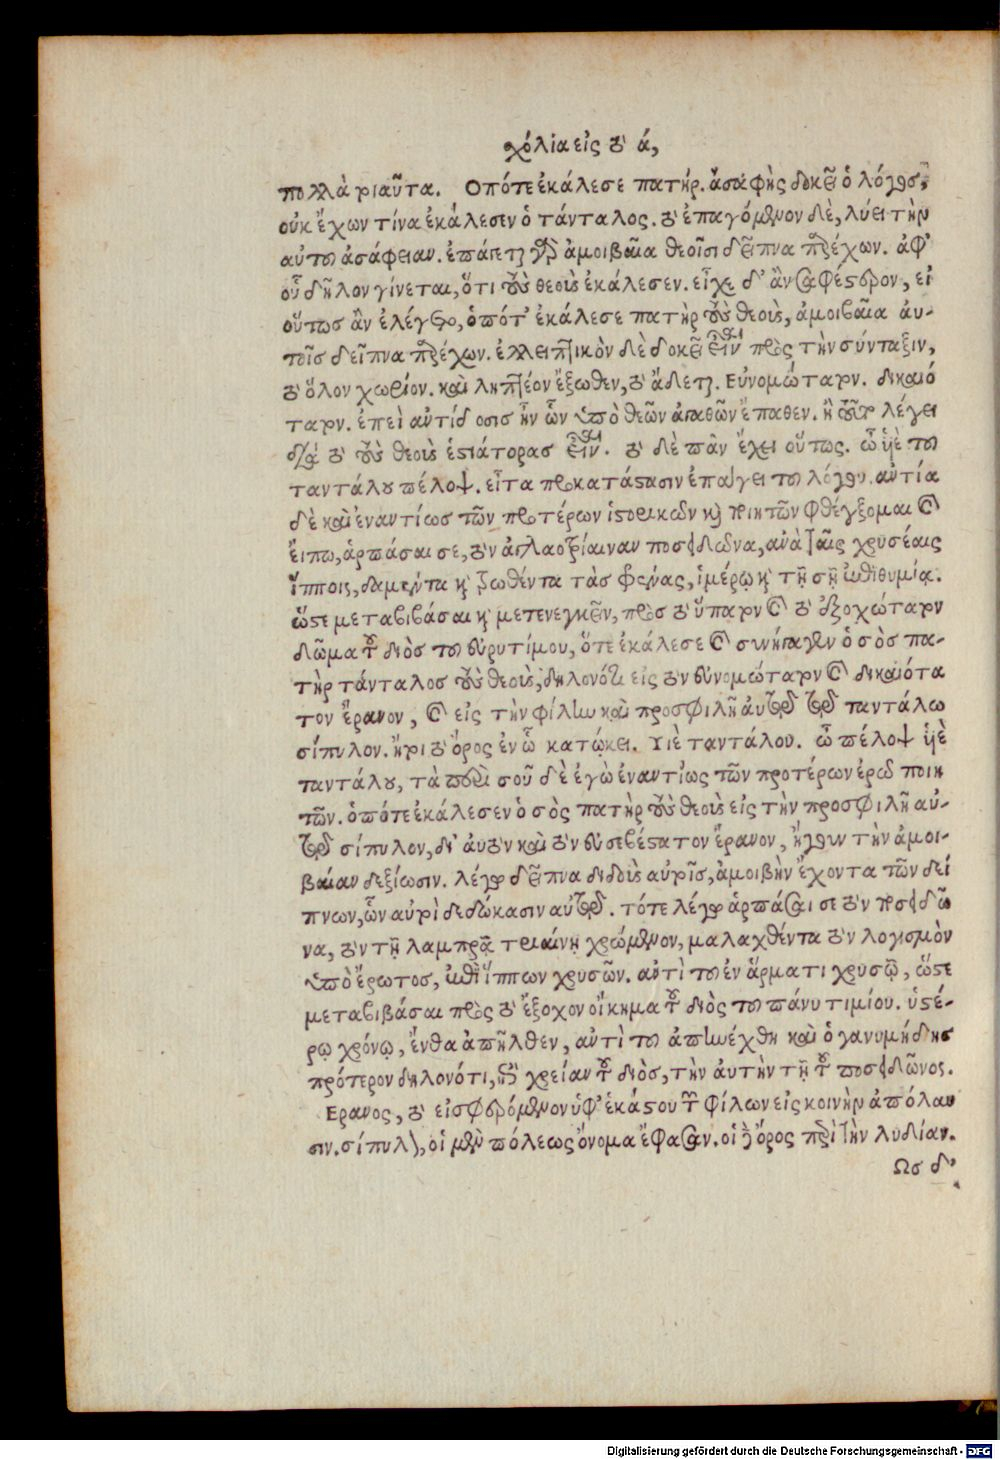 χόλια εἰς τὸ ά,
πολλὰ τοιαῦτα. Οπότε ἐκάλεσε πατήρ. ἀσαφὴς δοκεῖ ὁ λόγος,
οὐκ ἔχων τίνα ἐκάλεσεν ὁ τάνταλος. τὸ ἐπαγόμενον δὲ, λύει τὴν
αὐτοῦ ἀσάφειαν. ἐπάγεται γὰρ ἀμοιβαῖα θεοῖσι δεῖπνα παρέχων. ἀφ'
οὗ δῆλον γίνεται, ὅτι τοὺς θεοὺς ἐκάλεσεν. εἶχε δ' ἂν σαφέστερον, εἰ
οὕτως ἂν ἐλέγετο, ὁπότ' ἐκάλεσε πατὴρ τοὺς θεοὺς, ἀμοιβαῖα αὐ-
τοῖς δεῖπνα παρέχων. ἐλλειπτικὸν δὲ δοκεῖ εἶναι πρὸς τὴν σύνταξιν,
τὸ ὅλον χωρίον. καὶ ληπτέον ἔξωθεν, τὸ ᾄδεται. Εὐνομώτατον. δικαιό
τατον. ἐπεὶ αὐτίδοσις ἦν ὧν ὑπὸ θεῶν ἀγαθῶν ἔπαθεν. ἢ λέγει
διὰ τὸ τοὺς θεοὺς ἑστιάτορας εἶναι. τὸ δὲ πᾶν ἔχει οὕτως. ὦ υἱὲ τοῦ
ταντάλου πέλοψ. εἶτα πρὸ κατάστασιν ἐπάγει τοῦ λόγου. ἀντία
δὲ καὶ ἐναντίως τῶν προτέρων ἱστορικῶν καὶ ποιητῶν φθέγξομαι καὶ
εἴπω, ἁρπάσαι σε, τὸν ἀγλαοτρίαιναν ποσειδῶνα, ἀνὰ ταῖς χρυσέαις
ἵπποις, δαμέντα καὶ ζωθέντα τὰς φρένας, ἱμέρῳ καὶ τῇ σῇ ἐπιθυμίᾳ.
ὥστε μεταβιβάσαι καὶ μετενεγκεῖν, πρὸς τὸ ὕπατον καὶ τὸ ἐξοχώτατον
δῶμα τοῦ διὸς τοῦ εὐρυτίμου, ὅτε ἐκάλεσε καὶ συνήγαγεν ὁ σὸς πα-
τὴρ τάνταλος τοὺς θεοὺς, δηλονότι εἰς τὸν εὐνομώτατον καὶ δικαιότα
τον ἔρανον, καὶ εἰς τὴν φίλην καὶ προσφιλῆ αὐτῷ τῷ ταντάλω
σίπυλον. ἤτοι τὸ ὄρος ἐν ὧ κατῴκει. Υἱὲ ταντάλου. ὦ πέλοψ υἱὲ
ταντάλου, τὰ περὶ σοῦ δὲ ἐγὼ ἐναντίως τῶν προτέρων ἐρῶ ποιη
τῶν. ὁπότε ἐκάλεσεν ὁ σὸς πατὴρ τοὺς θεοὺς εἰς τὴν προσφιλῆ αὐ-
τῷ σίπυλον, δι' αὐτὸν καὶ τὸν εὐσεβέστατον ἔρανον, ἤγουν τὴν ἀμοι-
βαίαν δεξίωσιν. λέγω δεῖπνα διδοὺς αὐτοῖς, ἀμοιβὴν ἔχοντα τῶν δεί
πνων, ὧν αὐτοὶ δεδώκασιν αὐτῷ. τότε λέγω ἁρπάσαι σε τὸν ποσειδῶ
να, τὸν τῇ λαμπρᾷ τριαίνῃ χρώμενον, μαλαχθέντα τὸν λογισμὸν
ὑπὸ ἔρωτος, ἐπὶ ἵππων χρυσῶν. ἀντὶ τοῦ ἐν ἅρματι χρυσῷ, ὥστε
μεταβιβάσαι πρὸς τὸ ἔξοχον οἴκημα τοῦ διὸς τοῦ πάνυ τιμίου. ὑστέ-
ρῳ χρόνῳ, ἔνθα ἀπῆλθεν, ἀντὶ τοῦ ἀπηνέχθη καὶ ὁ γανυμήδης
πρότερον δηλονότι, ἐπὶ χρείαν τοῦ διὸς, τὴν αὐτὴν τῇ τοῦ ποσειδῶνος.
Ερανος, τὸ εἰσφερόμενον ὑφ' ἑκάστου τῶν φίλων εἰς κοινὴν ἀπόλαυ
σιν. σίπυλον, οἱ μὲν πόλεως ὄνομα ἔφασαν. οἱ δὲ ὄρος περὶ τὴν λυδίαν.
Ως δ'
Digitalisierung gefördert durch die Deutsche Forschungsgemeinschaft - DFG